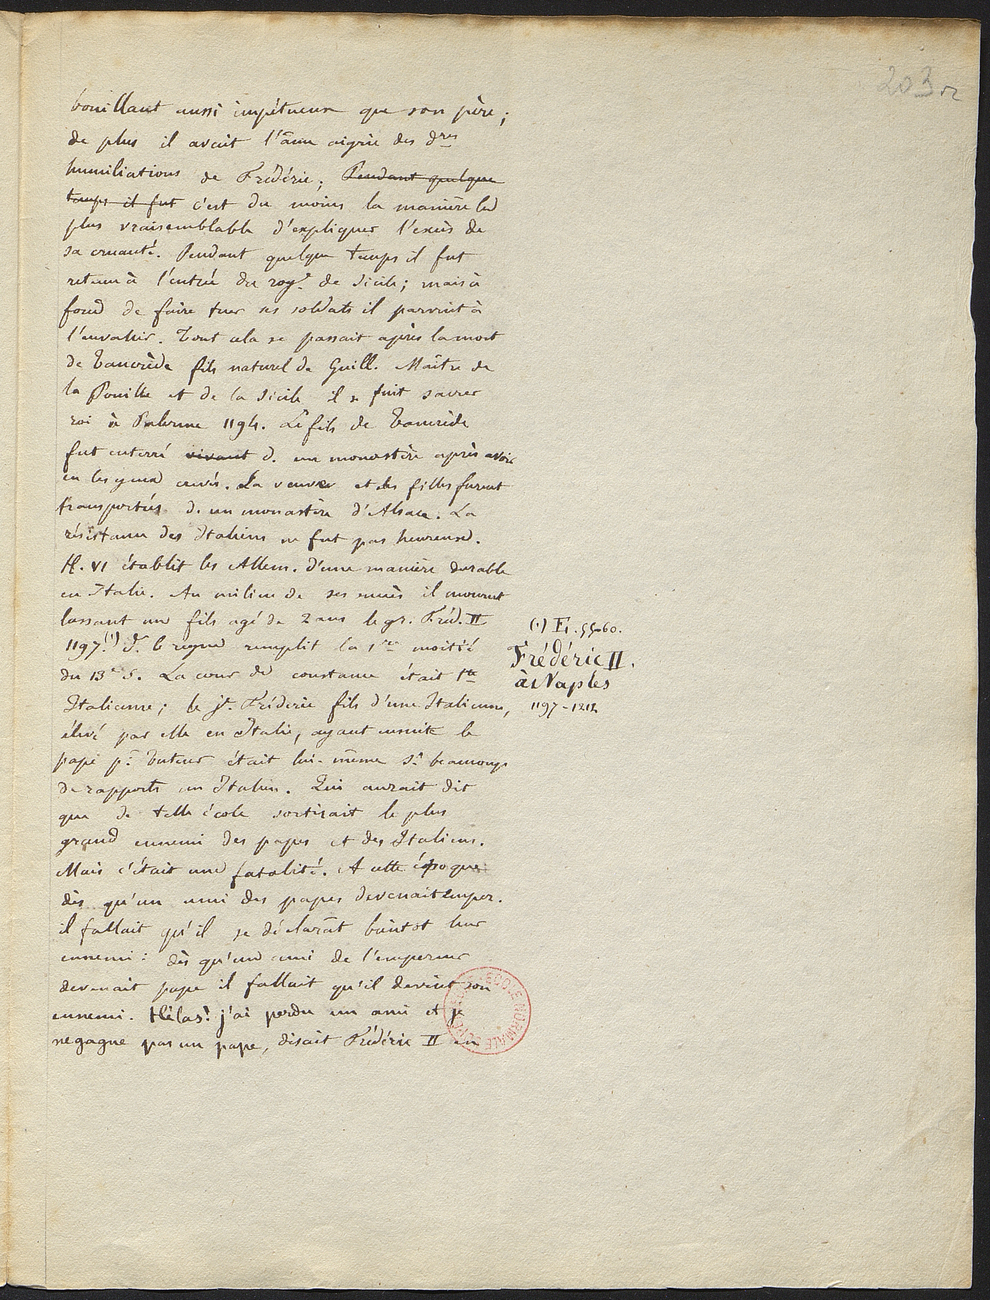 203 r
bouillant aussi impétueux que son père ;
de plus il avait l'âme aigrie des dres
humiliations de Frédéric ; Pendant quelque
temps il fut c'est du moins la manière la
plus vraisemblable d'expliquer l'excès de
sa cruauté. Pendant quelque temps il fut
retenu à l'entrée du roye de Sicile ; mais à
force de faire tuer ses soldats il parvint à
l'envahir. Tout cela se passait après la mort
de Tancrède fils naturel de Guill. Maître de
la Pouille et de la Sicile il se fait sacrer
roi à Palerme 1194. Le fils de Tancrède
fut enterré vivant d. un monastère après avoir
eu les yeux crevés. La veuve et les filles furent
transportées d. un monastère d'Alsace. La
résistance des Italiens ne fut pas heureuse.
H. VI établit les Allem. d'une manière durable
en Italie. Au milieu de ses succès il mourut
laissant un fils agé de 2 ans le gr. Fréd. II
1197. (1) d. le regne remplit la 1re moitié
du 13e S. La cour de Constance était tte
Italienne ; le jt. Frédéric fils d'une Italienne,
élevé par elle en Italie, ayant ensuite le
pape pr. tuteur était lui-même ss. beaucoup
de rapports un Italien. Qui aurait dit
que de telle école sortirait le plus
grand ennemi des papes et des Italiens.
Mais c'était une fatalité. A cette époque
dès qu'un ami des papes devenait emper.
il fallait qu'il se déclarât bientôt leur
ennemi : dès qu'un ami de l'empereur
devenait pape il fallait qu'il devint son
ennemi. Hélas ! j'ai perdu un ami et je
ne gagne pas un pape, disait Frédéric II en
(1) F. 5560.
Frédéric II.
à Naples
1197-1212
ECOLE NORMALE